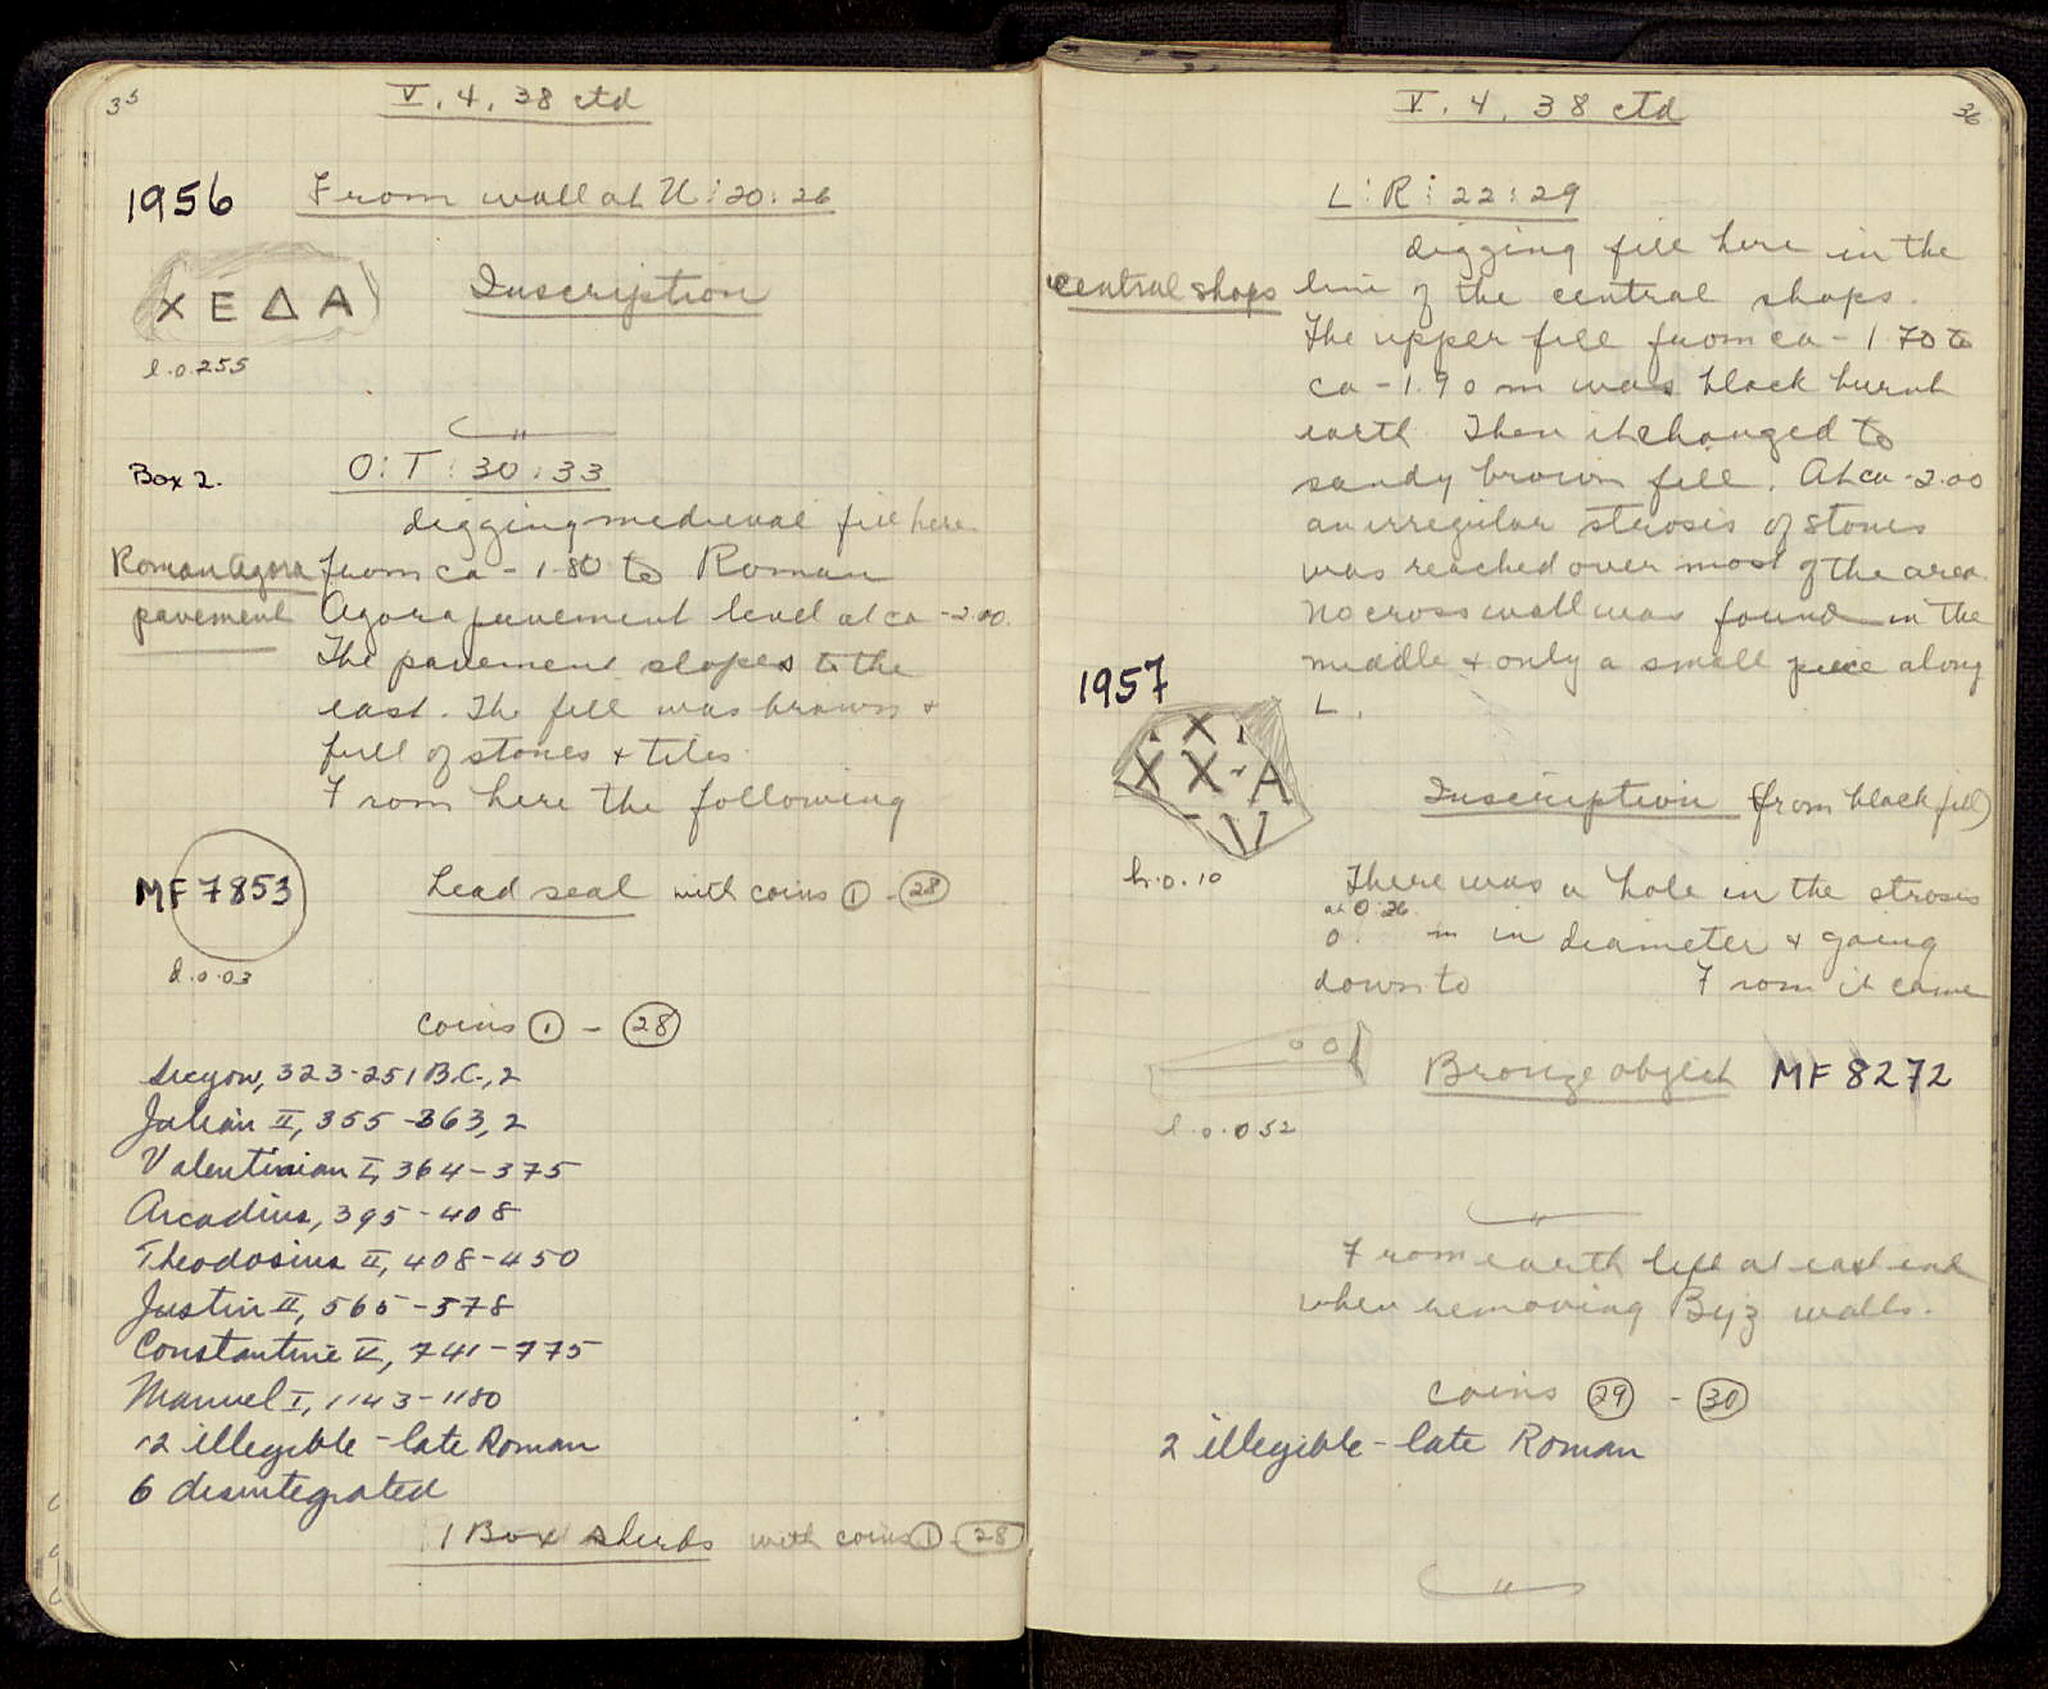 35
V. 4. 38 ctd
1956
From wall at N:20:26
Χ Ε Δ Α
Inscription
l. 0.255
Box 2.
O:T:30:33
digging medieval fill here
Roman Agora
pavement
from ca -1.80 to Roman
Agora pavement level at ca -2.00.
The pavement slopes to the
east. The fill was brown +
full of stones + tiles
From here the following
MF 7853
Lead seal with coins 1 - 28
d. 0.03
coins 1 - 28
Sicyon, 323-251 B.C., 2
Julian II, 355-363, 2
Valentinian I, 364-375
Arcadius, 395-408
Theodosius II, 408-450
Justin II, 565-578
Constantine V, 741-775
Manuel I, 1143-1180
12 illegible - late Roman
6 disintegrated
1 Box sherds with coins 1 - 28
36
V. 4. 38 ctd
L:R:22:29
digging fill here in the
central shops
line of the central shops.
The upper fill from ca -1.70 to
ca -1.90 m was black burnt
earth. Then it changed to
sandy brown fill. At ca -2.00
an irregular strosis of stones
was reached over most of the area.
No cross wall was found in the
middle + only a small piece along
L.
1957
X
X X A
V
Inscription (from black fill)
h. 0.10
There was a hole in the strosis
at O:26
0. m in diameter + going
down to From it came
Bronze object MF 8272
l. 0.052
From earth left at east end
when removing Byz walls.
coins 29 - 30
2 illegible - late Roman